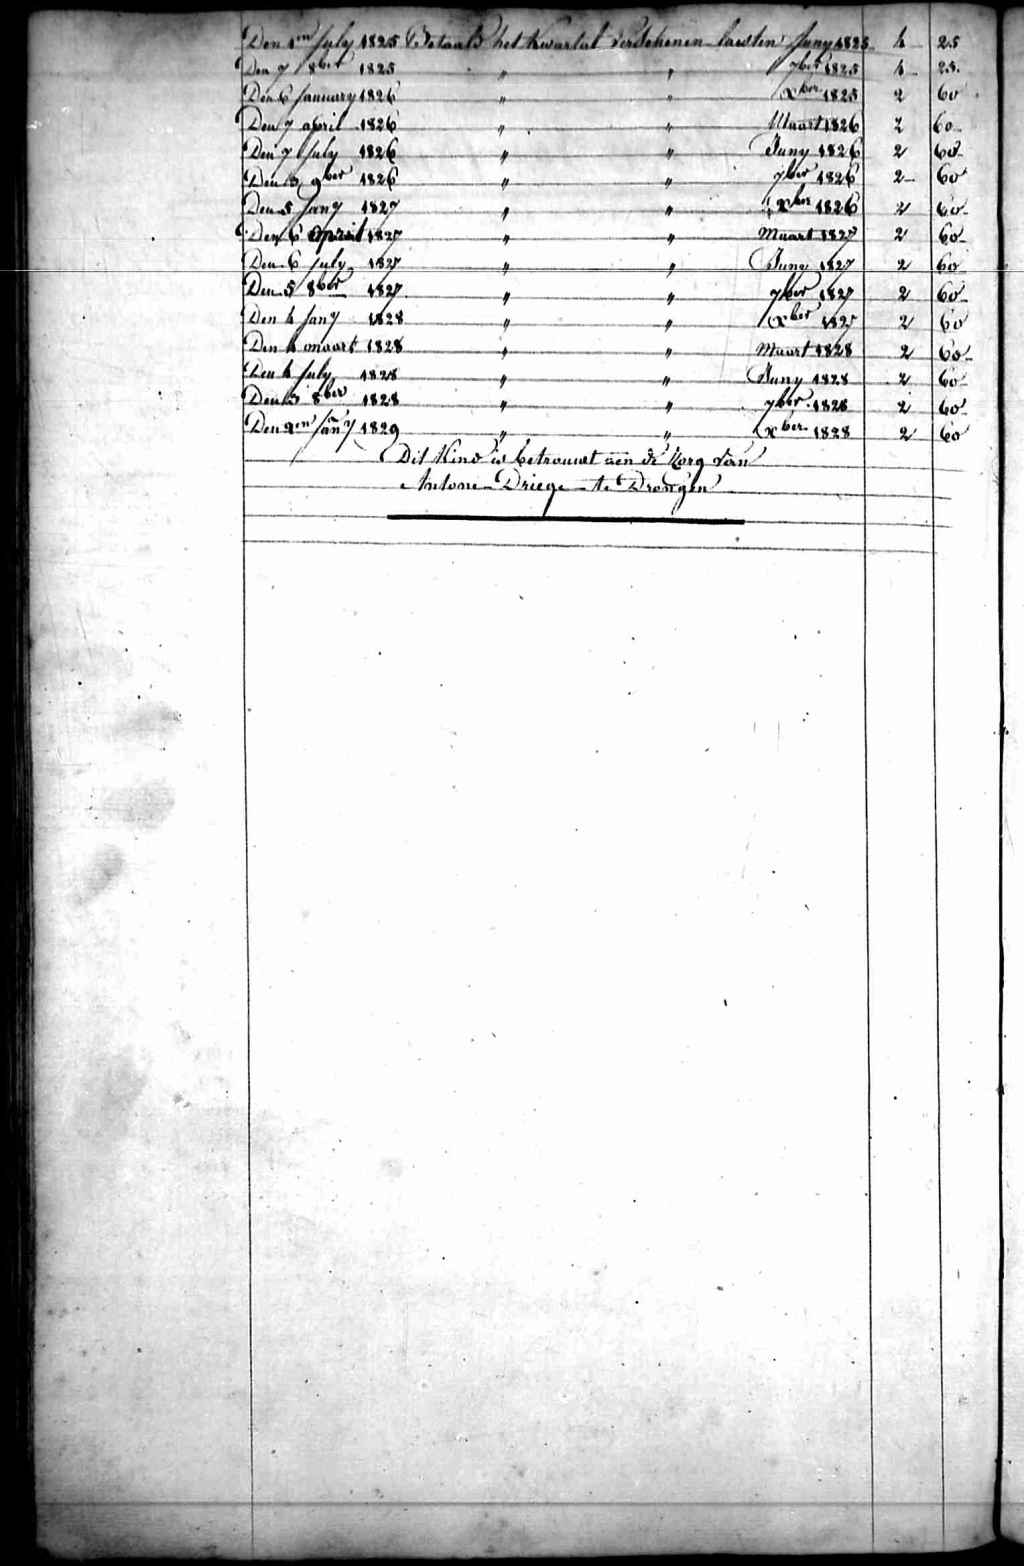 Den 1en July 1825 Betaald het kwartal verschenen laesten Juny 1825 4 25
Den 7 8ber 1825 " " 7ber 1825 4 25.
Den 6 January 1826 " " Xber 1825 2 60
Den 7 april 1826 " " Maart 1826 2 60
Den 7 July 1826 " " Juny 1826 2 60
Den 3 9ber 1826 " " 7ber 1826 2 60
Den 5 Jany 1827 " " Xber 1826 2 60
Den 6 April 1827 " " Maart 1827 2 60
Den 6 July 1827 " " Juny 1827 2 60
Den 5 8ber 1827 " " 7ber 1827 2 60
Den 4 Jany 1828 " " Xber 1827 2 60
Den 4 maart 1828 " " Maart 1828 2 60
Den 4 July 1828 " " Juny 1828 2 60
Den 3 8ber 1828 " " 7ber 1828 2 60
Den 2en Jany 1829 " " Xber 1828 2 60
Dit Kind is betrouwt aen de Zorg van
Antone Driege te Drongen